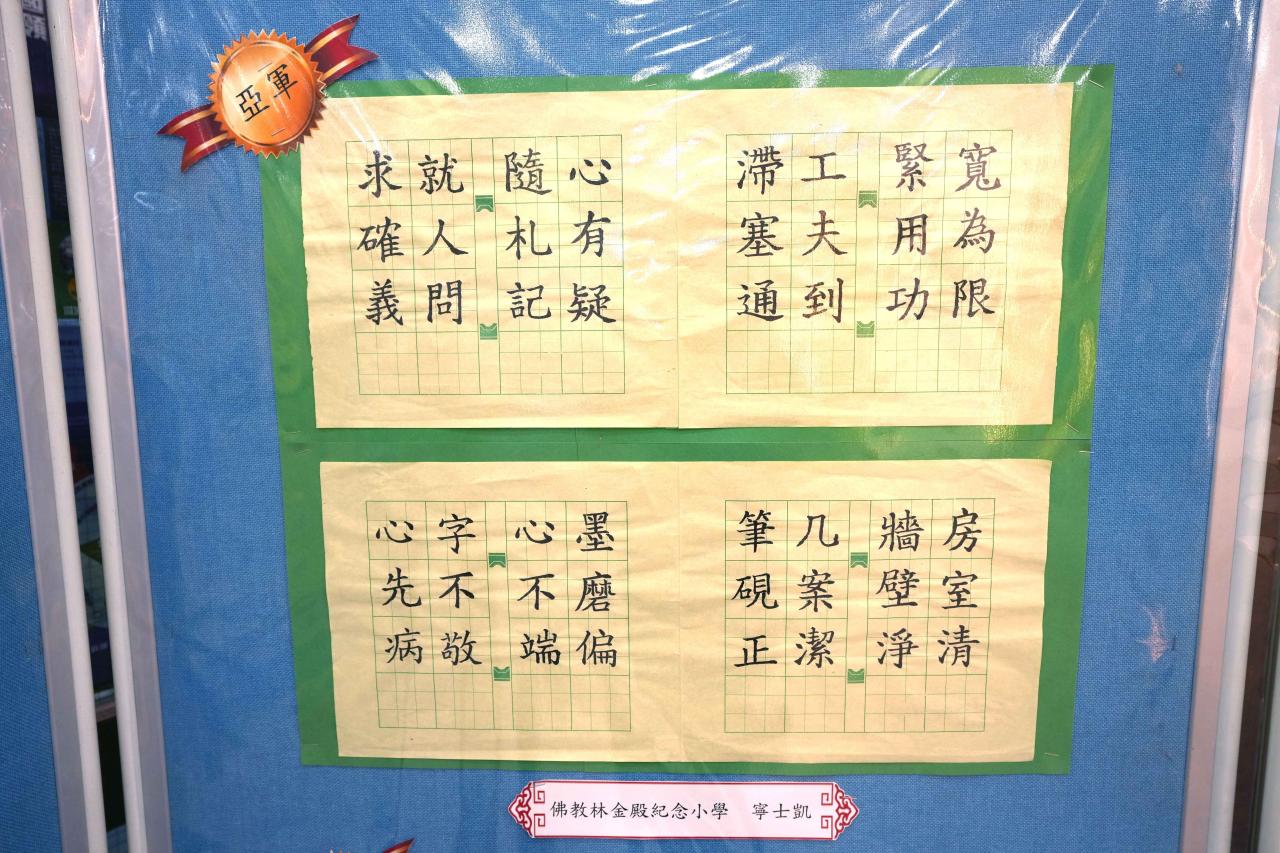 亞軍
寬為限
緊用功
工夫到
滯塞通
心有疑
隨札記
就人問
求確義
房室清
牆壁淨
几案潔
筆硯正
墨磨偏
心不端
字不敬
心先病
佛教林金殿紀念小學　寧士凱